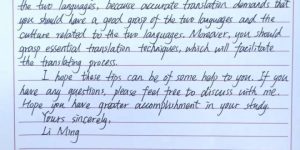 the two languages, because accurate translation demands that
you should have a good grasp of the two languages and the
culture related to the two languages. Moreover, you should
grasp essential translation techniques, which will facilitate
the translating process.
I hope these tips can be of some help to you. If you
have any questions, please feel free to discuss with me.
Hope you have greater accomplishment in your study.
Yours sincerely,
Li Ming